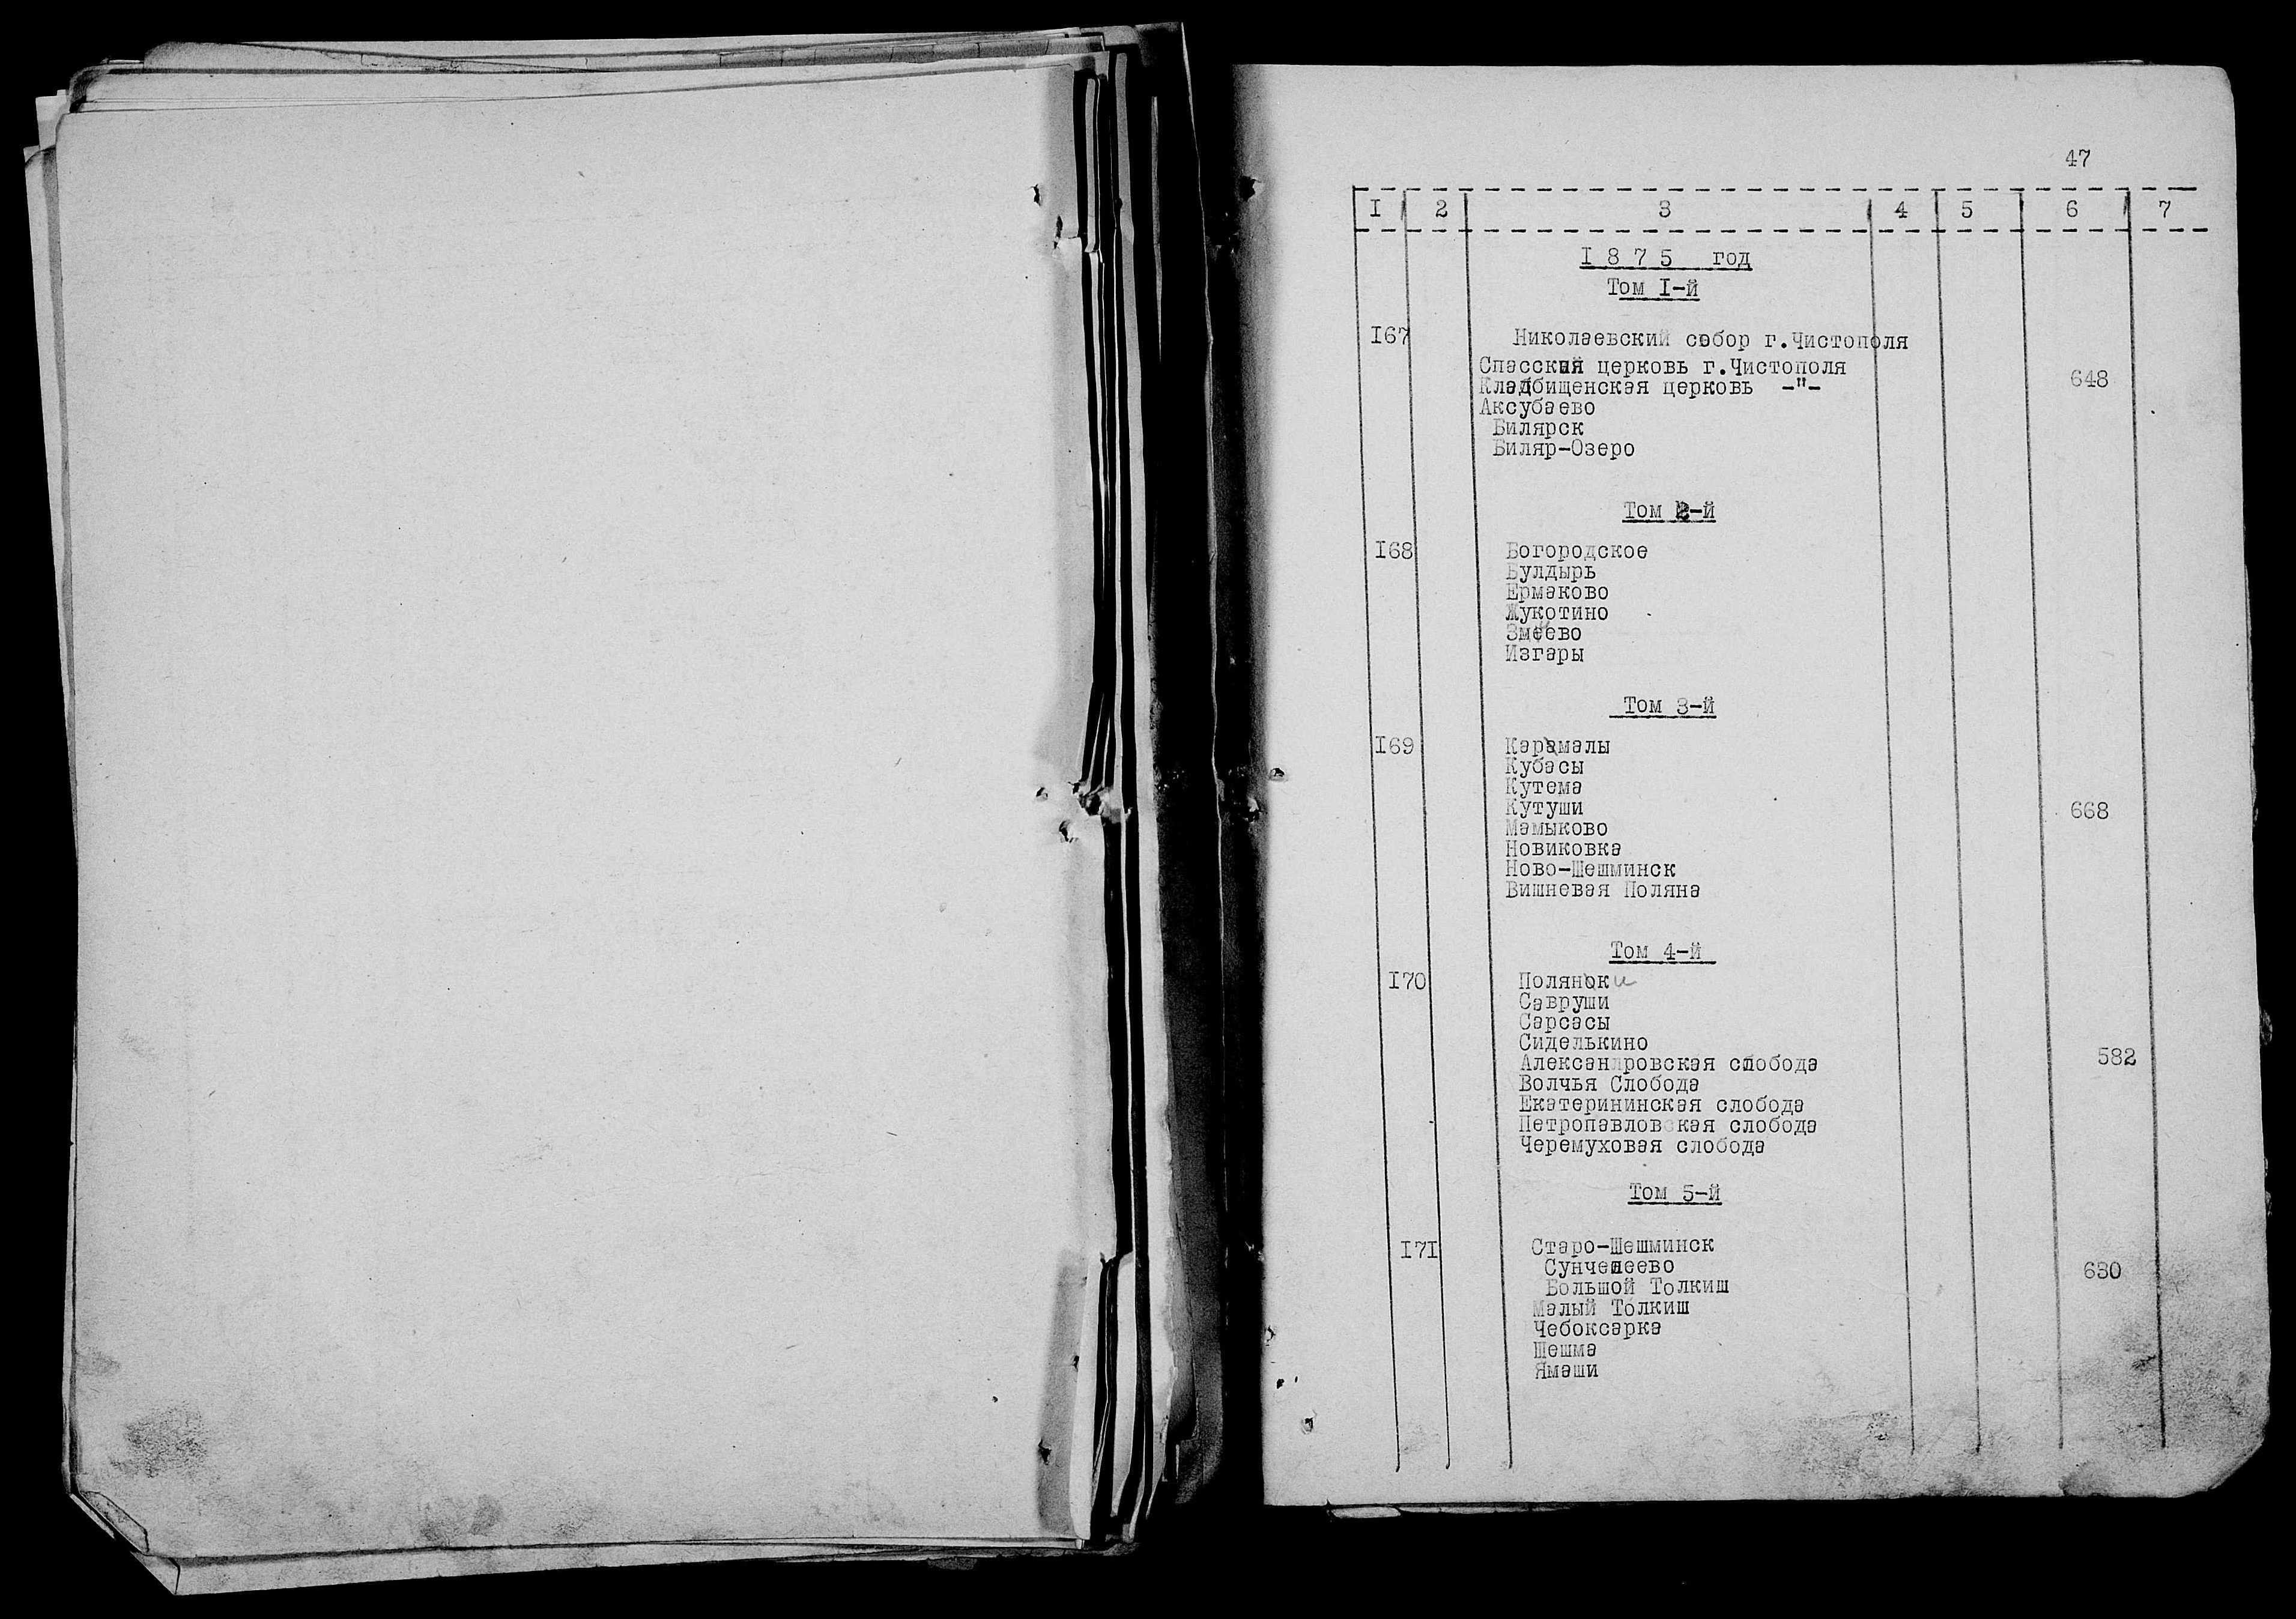 47
I 2 3 4 5 6 7
I 8 7 5 год
Том I-й
I67 Николаевский собор г.Чистополя
Спасская церковь г.Чистополя
648
Кладбищенская церковь -"-
Аксубаево
Билярск
Биляр-Озеро
Том 2-й
I68 Богородское
Булдырь
Ермаково
Жукотино
Змеево
Изгары
Том 3-й
I69 Карамалы
Кубасы
Кутема
Кутуши 668
Мамыково
Новиковка
Ново-Шешминск
Вишневая Поляна
Том 4-й
I70 Полянки
Савруши
Сарсасы
Сиделькино
Александровская слобода 582
Волчья Слобода
Екатерининская слобода
Петропавловская слобода
Черемуховая слобода
Том 5-й
I7I Старо-Шешминск
Сунчелеево 630
Большой Толкиш
Малый Толкиш
Чебоксарка
Шешма
Ямаши